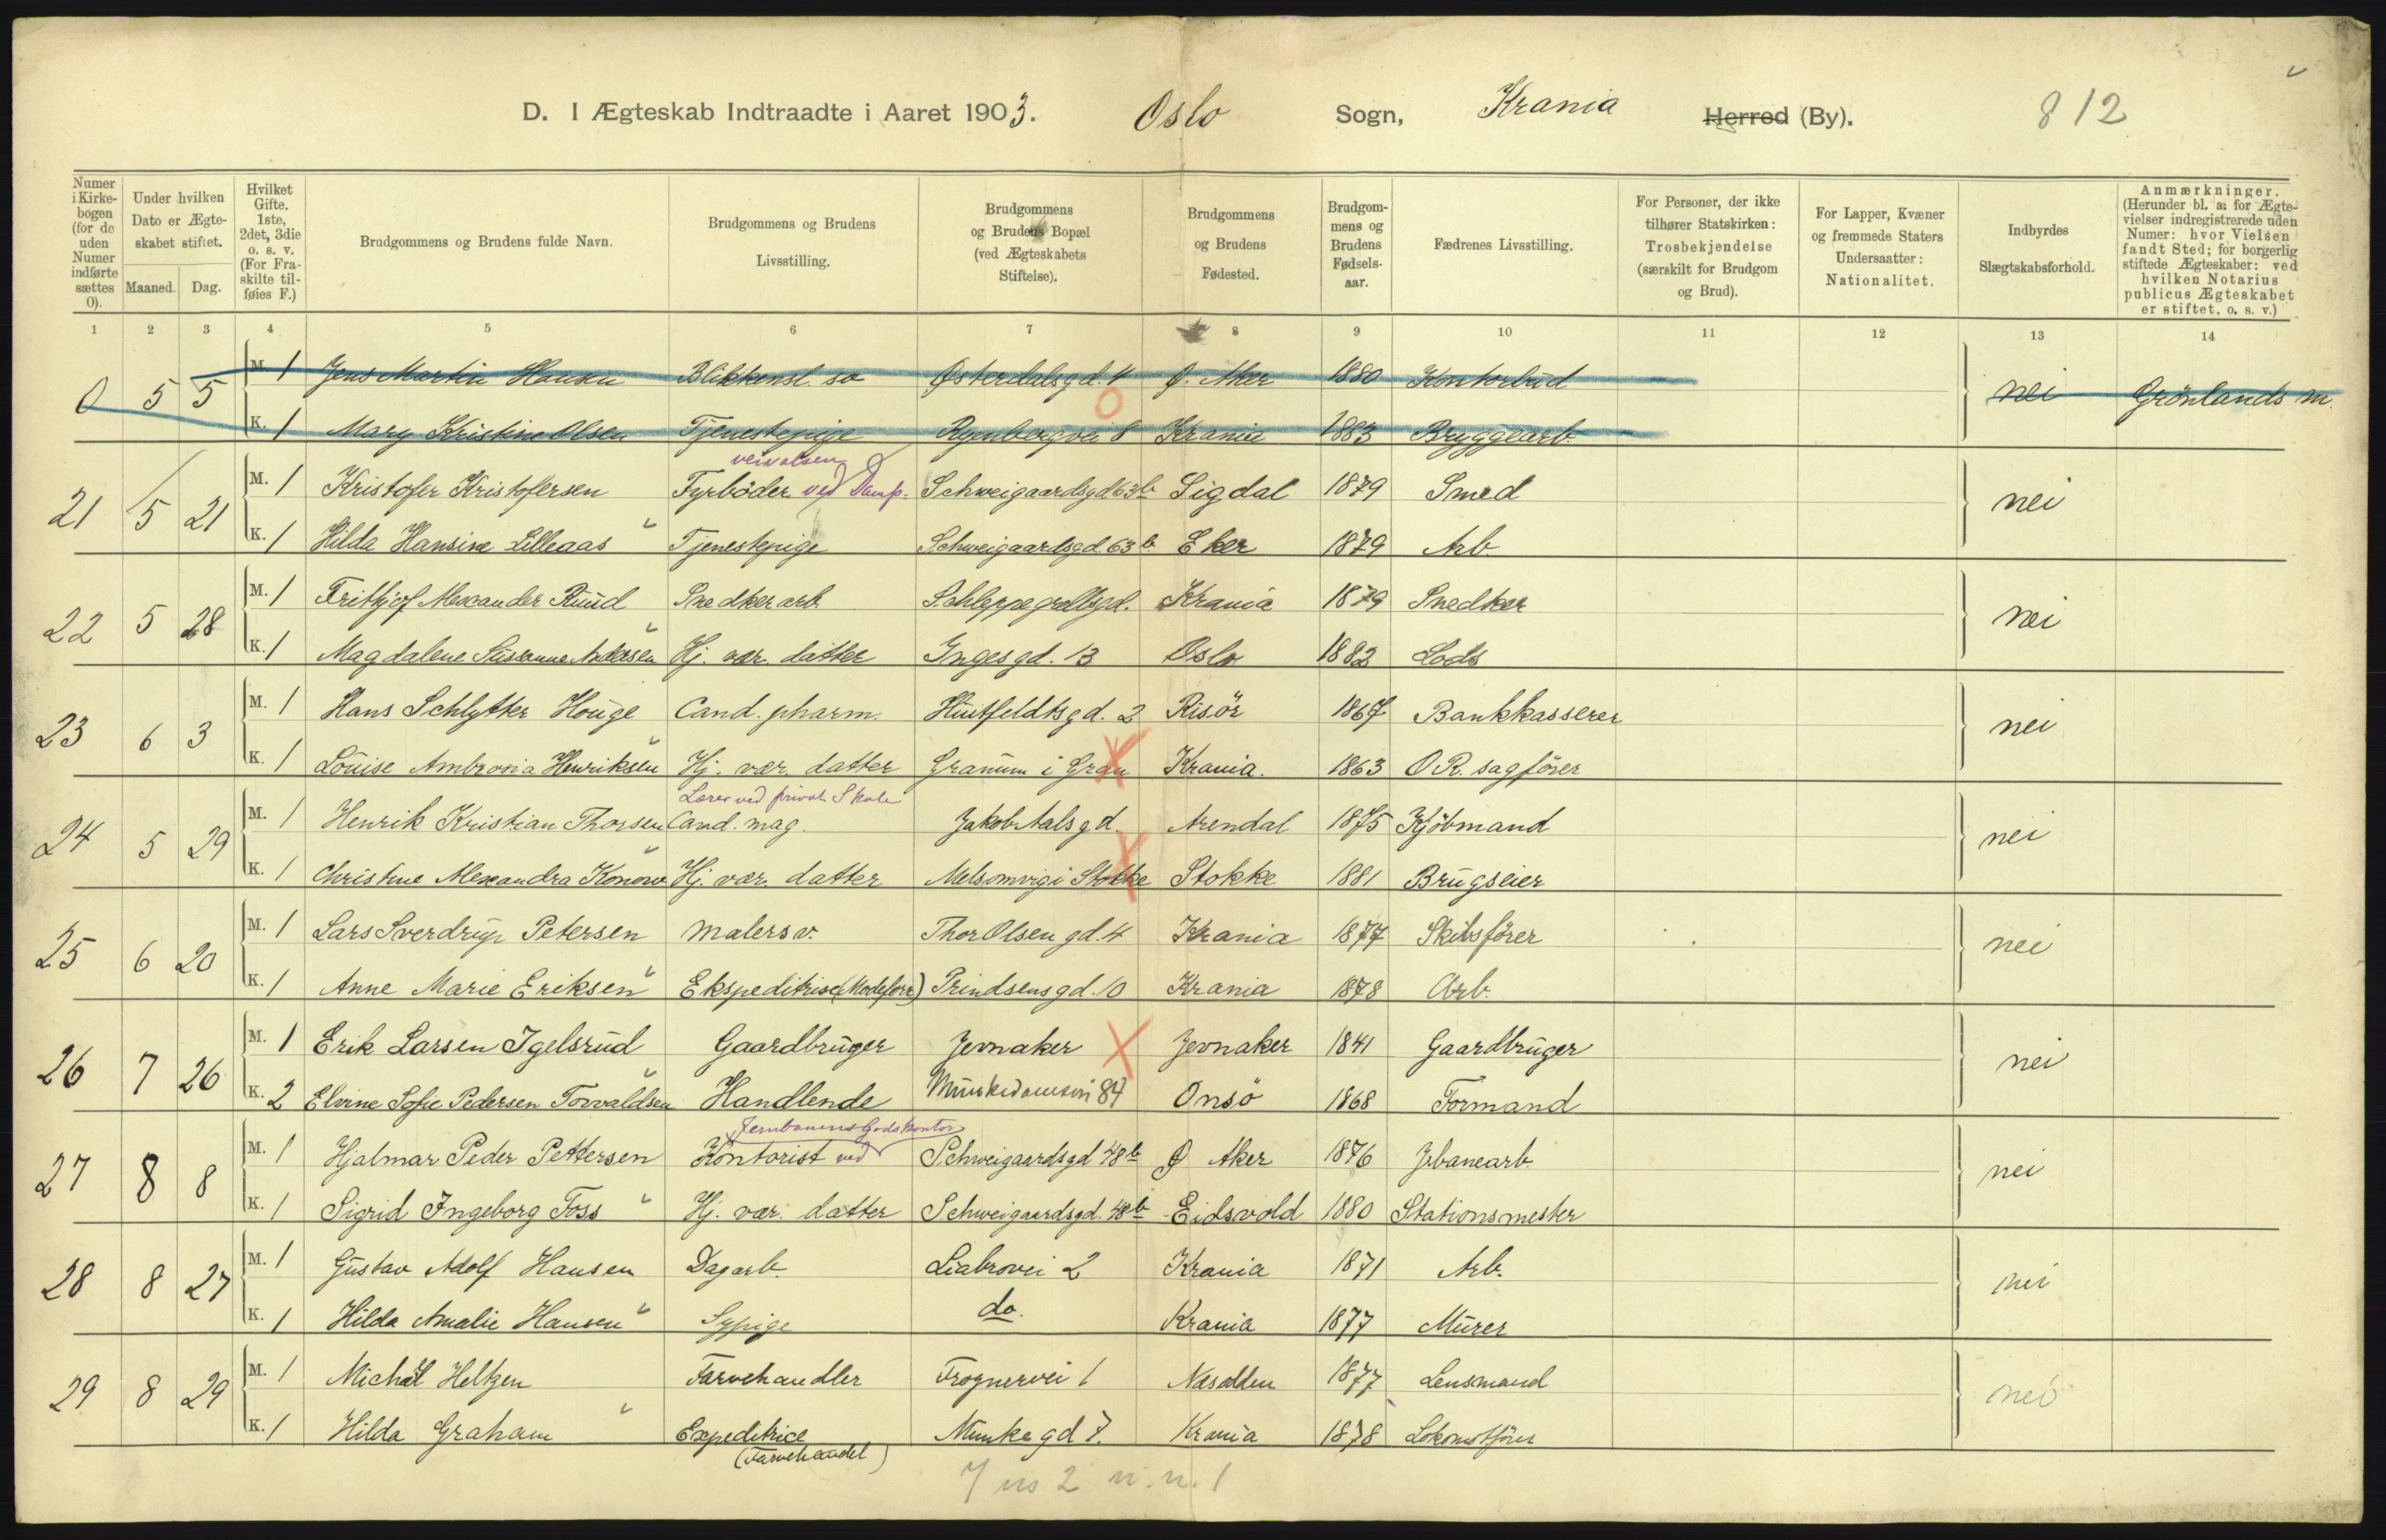 D. I Ægteskab Indtraadte i Aaret 1903. Oslo Sogn, Krania Herred (By). 812
Numer i Kirkebogen (for de uden Numer indførte sættes 0).
Under hvilken Dato er Ægteskabet stiftet.
Maaned. Dag.
Hvilket Gifte. 1ste, 2det, 3die o. s. v. (For Fraskilte tilføies F.)
Brudgommens og Brudens fulde Navn.
Brudgommens og Brudens Livsstilling.
Brudgommens og Brudens Bopæl (ved Ægteskabets Stiftelse).
Brudgommens og Brudens Fødested.
Brudgommens og Brudens Fødselsaar.
Fædrenes Livsstilling.
For Personer, der ikke tilhører Statskirken: Trosbekjendelse (særskilt for Brudgom og Brud).
For Lapper, Kvæner og fremmede Staters Undersaatter: Nationalitet.
Indbyrdes Slægtskabsforhold.
Anmærkninger. (Herunder bl. a. for Ægtevielser indregistrerede uden Numer: hvor Vielsen fandt Sted; for borgerlig stiftede Ægteskaber: ved hvilken Notarius publicus Ægteskabet er stiftet, o. s. v.)
1 2 3 4 5 6 7 8 9 10 11 12 13 14
0 5 5 M. 1 Jens Martin Hansen Blikkensl. sv Østerdalsgd. 4 Ø. Aker 1880 Kontorbud nei Grönlands m.
K. 1 Mary Kristine Olsen Tjenestepige Ryenbergvei 8 Krania 1883 Bryggearb.
veivalsen
21 5 21 M. 1 Kristofer Kristofersen Fyrböder ved Damp- Schweigaardsgd 63b Sigdal 1879 Smed nei
K. 1 Hilda Hansine Lilleaas Tjenestepige Schweigaardsgd. 63b Eker 1879 Arb.
22 5 28 M. 1 Frithjof Alexander Ruud Snedkerarb. Schleppegrellsgd. Krania 1879 Snedker nei
K. 1 Magdalene Susanne Andersen Hj. vær. datter Ingesgd. 13 Oslo 1882 Lods
23 6 3 M. 1 Hans Schlytter Houge Cand. pharm. Huitfeldtsgd. 2 Risör 1867 Bankkasserer nei
K. 1 Louise Ambrosia Henriksen Hj. vær. datter Granum i Gran Krania. 1863 O.R. sagförer
Lærer ved privat Skole
24 5 29 M. 1 Henrik Kristian Thorsen Cand. mag. Jakob Aalsgd. Arendal 1875 Kjöbmand nei
K. 1 Christine Alexandra Konow Hj. vær. datter Melsomvig i Stokke Stokke 1881 Brugseier
25 6 20 M. 1 Lars Sverdrup Petersen Malersv. Thor Olsengd. 4 Krania 1877 Skibsförer nei
K. 1 Anne Marie Eriksen Ekspeditrise (Modeforr.) Prindsensgd. 10 Krania 1878 Arb.
26 7 26 M. 1 Erik Larsen Igelsrud Gaardbruger Jevnaker Jevnaker 1841 Gaardbruger nei
K. 2 Elvine Sofie Pedersen Torvaldsen Handlende Munkedamsvei 84 Onsö 1868 Formand
Jernbanens Godskontor
27 8 8 M. 1 Hjalmar Peder Pettersen Kontorist ved Schweigaardsgd 48b Ø Aker 1876 Jrbanearb. nei
K. 1 Sigrid Ingeborg Foss Hj. vær. datter Schweigaardsgd. 48b Eidsvold 1880 Stationsmester
28 8 27 M. 1 Gustav Adolf Hansen Dagarb. Liabrovei 2 Krania 1871 Arb. nei
K. 1 Hilda Amalie Hansen Sypige do. Krania 1877 Murer
29 8 29 M. 1 Michael Heltzen Farvehandler Frognervei 1 Næsodden 1877 Lensmand nei
K. 1 Hilda Graham Expeditrice Munkegd 7. Krania 1878 Lokomotförer
(Farvehandel)
7 2 n. n. 1